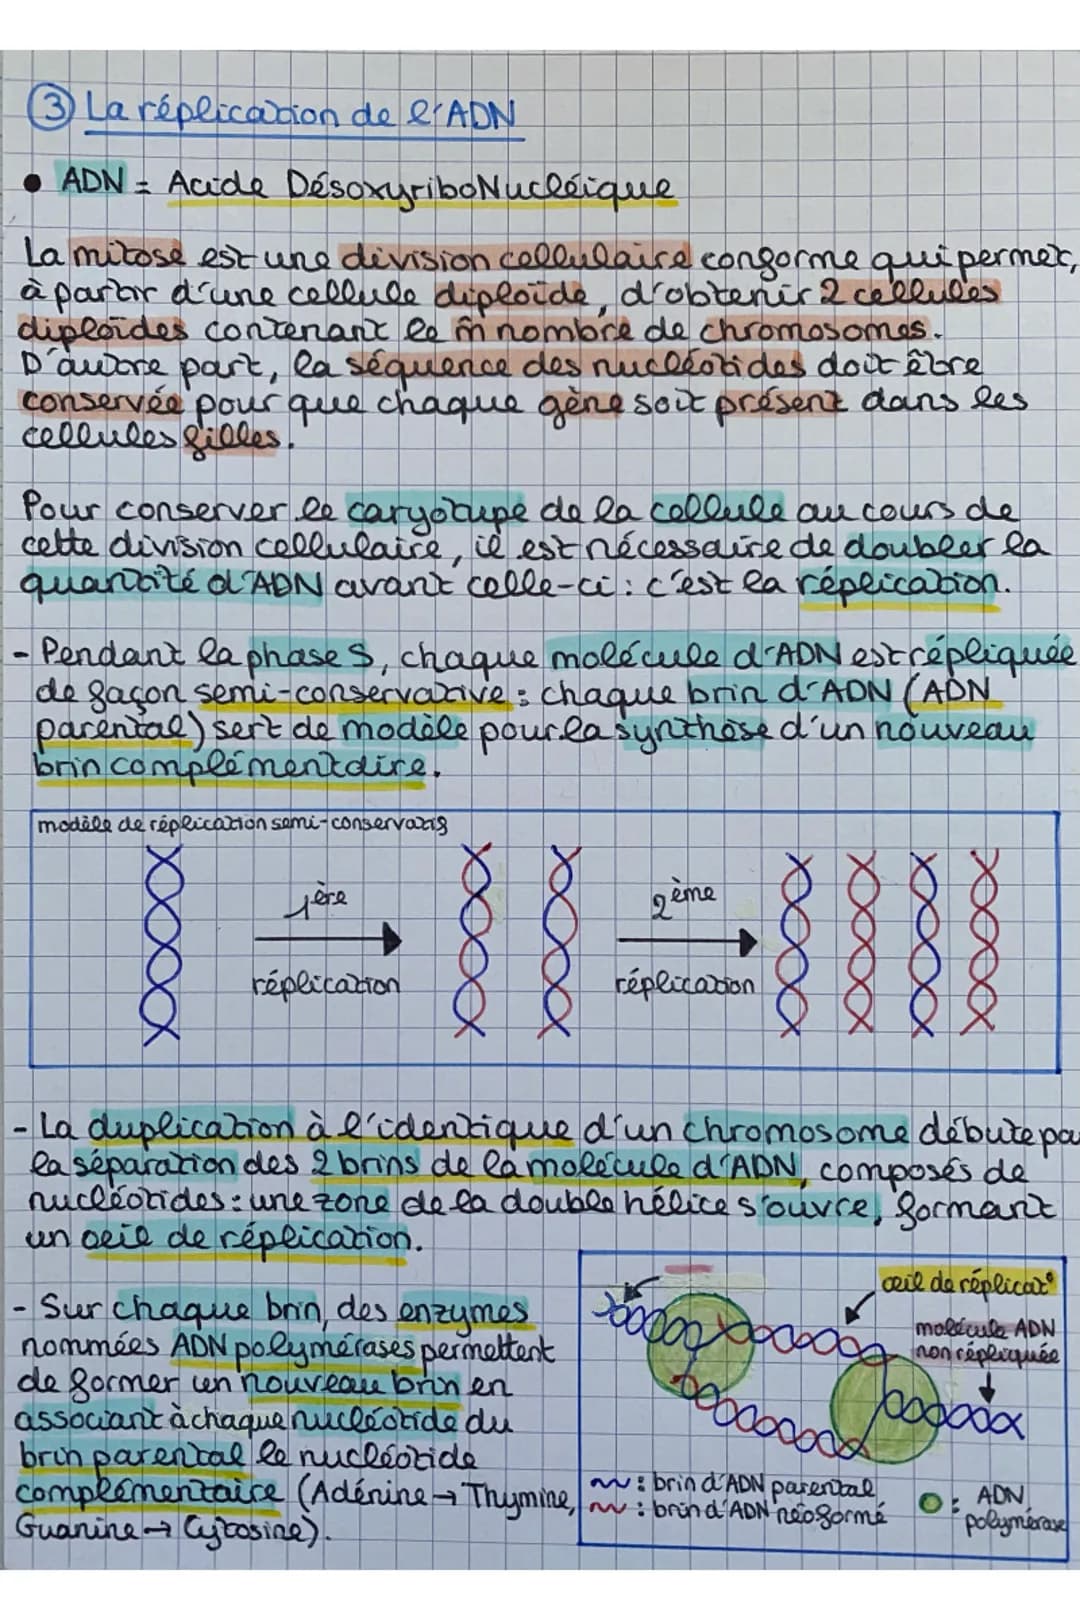 ③ La réplication de l'ADN
• ADN = Acide DésoxyriboNucléique
La mitose est une division cellulaire conforme qui permet,
à partir d'une cellule diploïde, d'obtenir 2 cellules
diploïdes contenant le m̂ nombre de chromosomes.
D'autre part, la séquence des nucléotides doit être
conservée pour que chaque gène soit présent dans les
cellules filles.
Pour conserver le caryotype de la cellule au cours de
cette division cellulaire, il est nécessaire de doubler la
quantité d'ADN avant celle-ci : c'est la réplication.
- Pendant la phase S, chaque molécule d'ADN est répliquée
de façon semi-conservative : chaque brin d'ADN (ADN
parental) sert de modèle pour la synthèse d'un nouveau
brin complémentaire.
modèle de réplication semi-conservatif
1ère
réplication
2ème
réplication
- La duplication à l'identique d'un chromosome débute pa
la séparation des 2 brins de la molécule d'ADN, composés de
nucléotides : une zone de la double hélice s'ouvre, formant
un oeil de réplication.
- Sur chaque brin, des enzymes
nommées ADN polymérases permettent
de former un nouveau brin en
associant à chaque nucléotide du
brin parental le nucléotide
complémentaire (Adénine → Thymine,
Guanine → Cytosine).
œil de réplicat°
molécule ADN
non répliquée
: brin d'ADN parental
: brin d'ADN néoformé
: ADN
polymérase